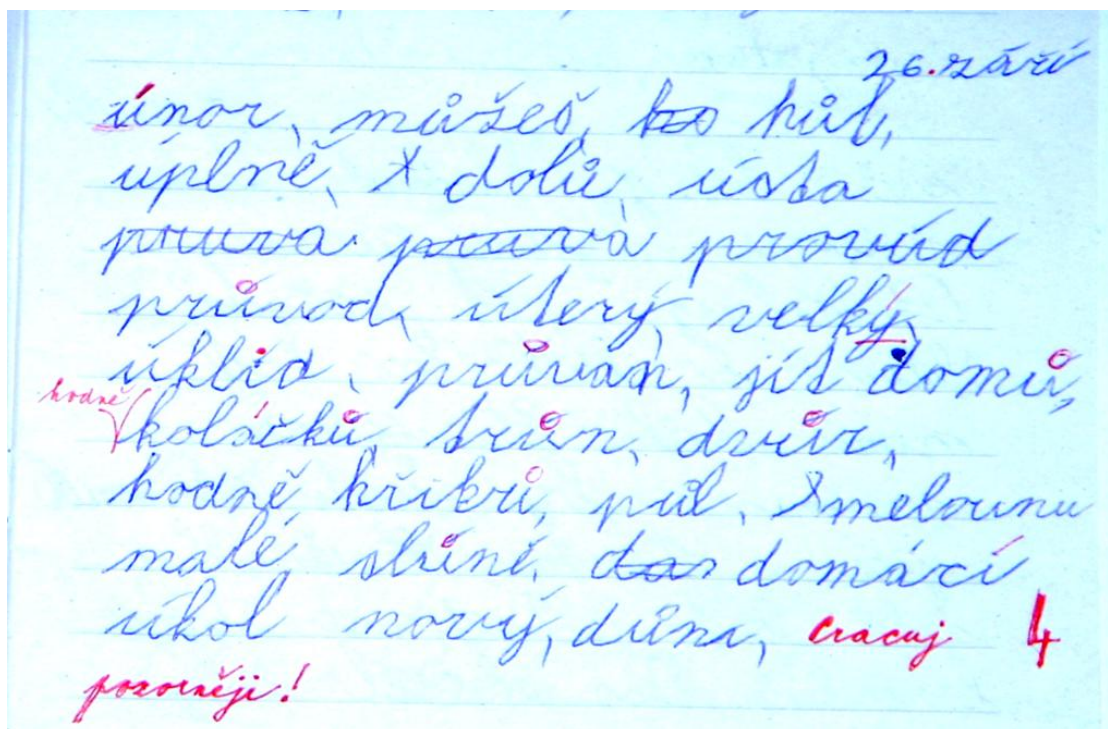 26. září
únor, můžeš, hůl,
úplně, dolů, ústa
pruva pruva provúd
průvod, úterý, velký,
úklid, průvan, jít domů,
hodně
koláčků, trůn, dvůr,
hodně křiků, půl, melounu
malé slůně, domácí
úkol nový, důna, pracuj 4
pozorněji!